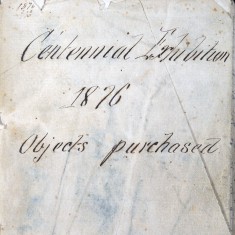 Centennial Exhibition
1876
Objects purchased